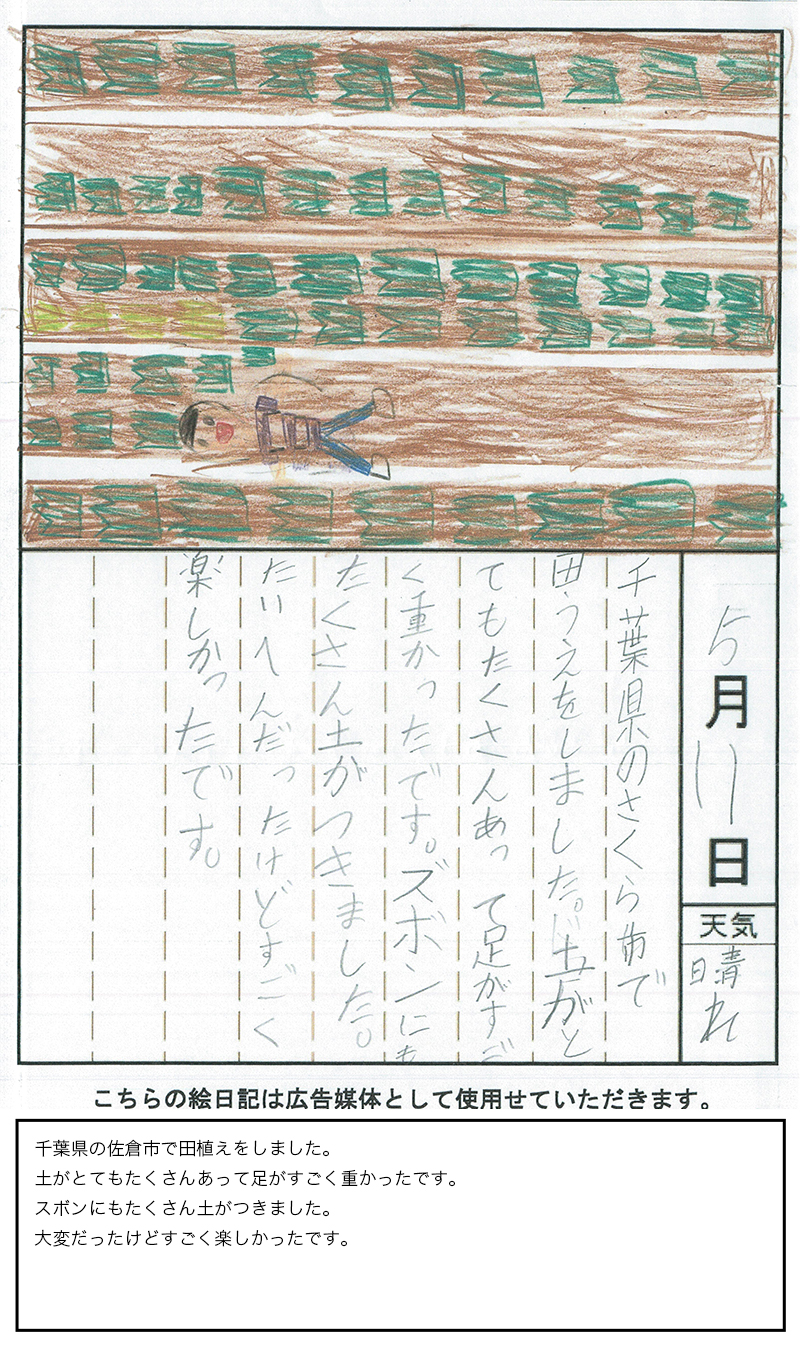 5月11日
天気
晴れ
千葉県のさくら市で
田うえをしました。土がと
てもたくさんあって足がすご
く重かったです。ズボンにも
たくさん土がつきました。
たいへんだったけどすごく
楽しかったです。
こちらの絵日記は広告媒体として使用せていただきます。
千葉県の佐倉市で田植えをしました。
土がとてもたくさんあって足がすごく重かったです。
スボンにもたくさん土がつきました。
大変だったけどすごく楽しかったです。